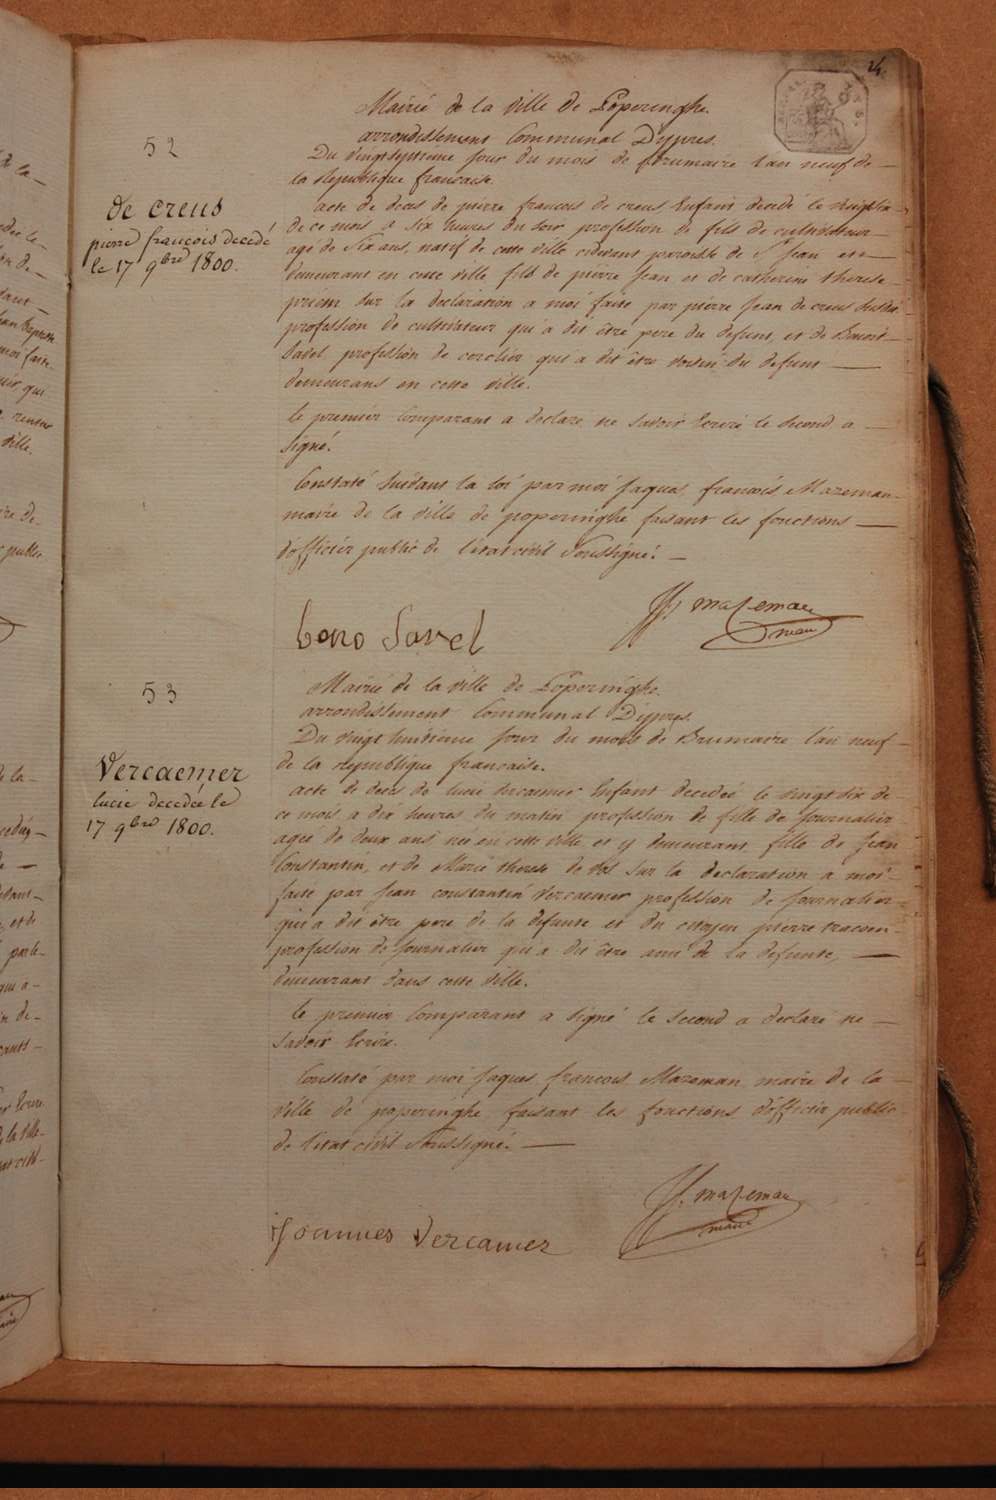 24
Mairié de la ville de Poperinghe.
arrondissement Communal D'ypres.
52
Du vingtseptieme jour du mois de brumaire l'an neuf de
la republique francaise.
de creus
pierre francois decedé
le 17 9bre 1800.
acte de deces de pierre francois de creus Enfant decedé le vingtsix
de ce mois à six heures du soir profession de fils de cultivateur
agé de six ans, natif de cette ville cidevant paroisse de St Jean et
demeurant en cette ville fils de pierre Jean et de catherine therese
priem sur la declaration a moi faite par pierre Jean de creus susdit
profession de cultivateur qui a dit être pere du defunt, et de Benoit
Savel profession de cordier qui a dit être voisin du defunt
demeurans en cette ville.
le premier comparant a declaré ne savoir Ecrire le second a
signé.
Constaté suivant la loi par moi Jaques francois Mazeman
maire de la ville de poperinghe faisant les fonctions
d'officier public de l'état civil soussigné.
JJ. mazeman
maire
beno Savel
53
Mairié de la ville de Poperinghe.
arrondissement Communal D'ypres.
Du vingt huitieme jour du mois de Brumaire l'an neuf
de la republique francaise.
Vercaemer
lucie decedée le
17 9bre 1800.
acte de deces de lucie vercaemer Enfant decedée le vingt six de
ce mois a dix heures du matin profession de fille de journalier
agée de deux ans née en cette ville et y demeurant, fille de Jean
Constantin, et de Marie therese de vos sur la declaration à moi
faite par Jean constantin vercaemer profession de journalier
qui a dit être pere de la defunte et du citoyen pierre tracoen
profession de journalier qui a dit être ami de la defunte,
demeurant dans cette ville.
le premier comparant a signé le second a declaré ne
savoir Ecrire.
Constaté par moi Jaques francois Mazeman maire de la
ville de poperinghe, faisant les fonctions d'officier public
de l'état civil soussigné.
JJ. mazeman
maire
Joannes Vercamer